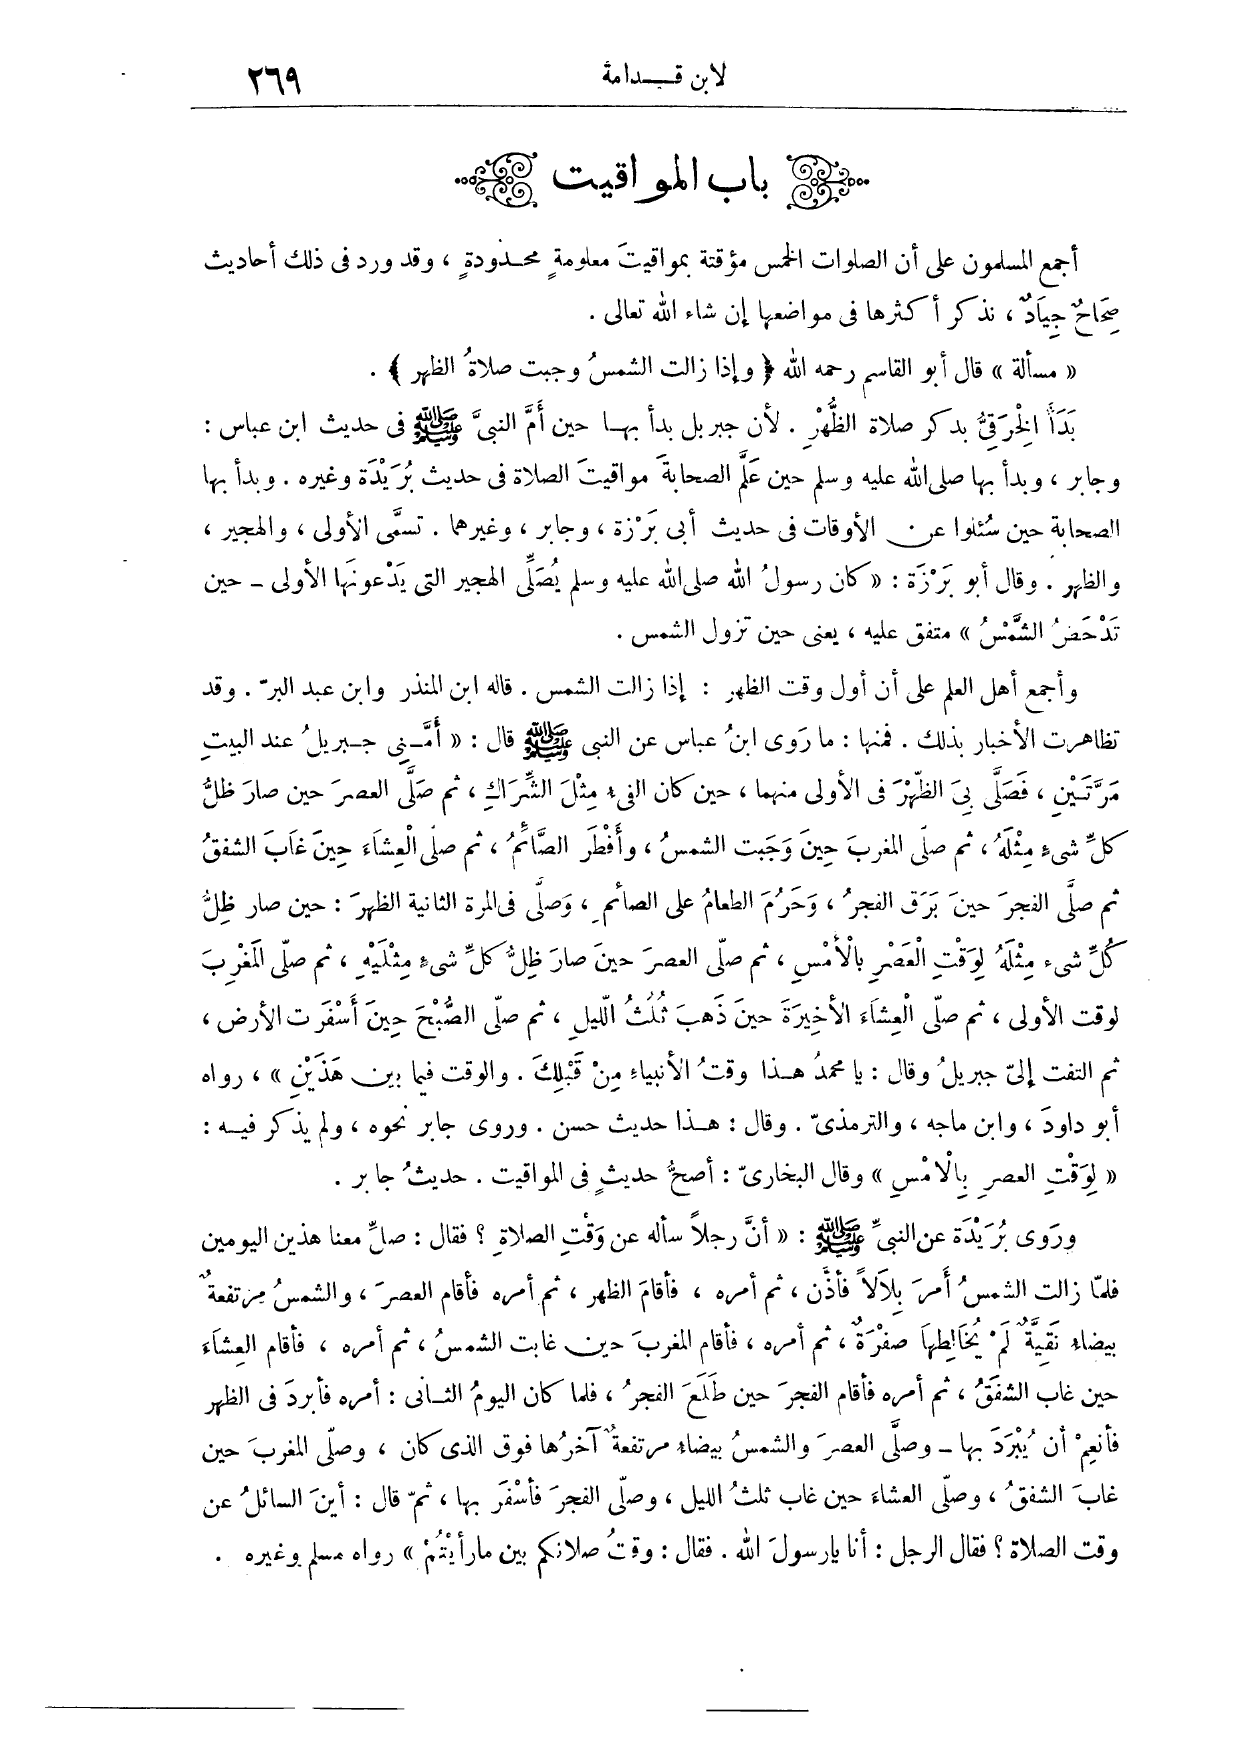 لابن قدامة ٢٦٩
باب المواقيت
أجمع المسلمون على أن الصلوات الخمس مؤقتة بمواقيتَ معلومةٍ محدودةٍ ، وقد ورد فى ذلك أحاديث
صِحَاحٌ جِيَادٌ ، نذكر أكثرها فى مواضعها إن شاء الله تعالى .
« مسألة » قال أبو القاسم رحمه الله ﴿ وإذا زالت الشمسُ وجبت صلاةُ الظهر ﴾ .
بَدَأَ الْخِرَقِىُّ بذكر صلاة الظُّهْرِ . لأن جبريل بدأ بها حين أَمَّ النبىَّ ﷺ فى حديث ابن عباس :
وجابر ، وبدأ بها صلى الله عليه وسلم حين عَلَّمَ الصحابةَ مواقيتَ الصلاة فى حديث بُرَيْدَة وغيره . وبدأ بها
الصحابة حين سُئلوا عن الأوقات فى حديث أبى بَرْزة ، وجابر ، وغيرهما . تسمَّى الأولى ، والهجير ،
والظهر . وقال أبو بَرْزَة : « كان رسولُ الله صلى الله عليه وسلم يُصَلِّى الهجير التى يَدْعونَها الأولى ــ حين
تَدْحَضُ الشَّمْسُ » متفق عليه ، يعنى حين تزول الشمس .
وأجمع أهل العلم على أن أول وقت الظهر : إذا زالت الشمس . قاله ابن المنذر وابن عبد البرّ . وقد
تظاهرت الأخبار بذلك . فمنها : ما رَوى ابنُ عباس عن النبى ﷺ قال : « أَمَّنِى جبريلُ عند البيتِ
مَرَّتَيْنِ ، فَصَلَّى بِىَ الظّهْرَ فى الأولى منهما ، حين كان الفىء مِثْلَ الشِّرَاكِ ، ثم صَلَّى العصرَ حين صار ظلُّ
كلِّ شىءٍ مِثْلَهُ ، ثم صلى المغربَ حِينَ وَجَبت الشمسُ ، وأَفْطَرَ الصَّائمُ ، ثم صلّى الْعِشاءَ حِينَ غَابَ الشفقُ
ثم صلَّى الفجرَ حينَ بَرَق الفجرُ ، وَحَرُمَ الطعامُ على الصائم ، وَصَلَّى فى المرة الثانية الظهرَ : حين صار ظِلُّ
كُلِّ شىء مِثْلَهُ لِوَقْتِ الْعَصْرِ بِالْأَمْسِ ، ثم صلّى العصرَ حينَ صارَ ظِلُّ كلِّ شىءٍ مِثْلَيْهِ ، ثم صلّى الْمَغْرِبَ
لوقت الأولى ، ثم صلّى الْعِشَاءَ الأخِيرَةَ حينَ ذَهبَ ثُلُثُ الّليلِ ، ثم صلّى الصُّبْحَ حِينَ أَسْفَرت الأرض ،
ثم التفت إلىّ جبريلُ وقال : يا محمدُ هذا وقتُ الأنبياءِ مِنْ قَبْلِكَ . والوقت فيما بين هَذَيْنِ » ، رواه
أبو داودَ ، وابن ماجه ، والترمذىّ . وقال : هذا حديث حسن . وروى جابر نحوه ، ولم يذكر فيه :
« لِوَقْتِ العصرِ بِالْأَمْسِ » وقال البخارىّ : أصحُّ حديثٍ فى المواقيت . حديثُ جابر .
ورَوى بُرَيْدَة عن النبىِّ ﷺ : « أنَّ رجلاً سأله عن وَقْتِ الصلاةِ ؟ فقال : صلِّ معنا هذين اليومين
فلمّا زالت الشمسُ أَمرَ بِلَالاً فأَذّن ، ثم أمره ، فأقامَ الظهر ، ثم أمره فأقام العصرَ ، والشمسُ مرتفعةٌ
بيضاء نَقِيَّةٌ لَمْ يُخَالِطهَا صفْرَةٌ ، ثم أمره ، فأقام المغربَ حين غابت الشمسُ ، ثم أمره ، فأقام العِشَاءَ
حين غاب الشفَقُ ، ثم أمره فأقام الفجرَ حين طَلَعَ الفجرُ ، فلما كان اليومُ الثانى : أمره فأبردَ فى الظهر
فأنعِمْ أن يُبْرَدَ بها ــ وصلَّى العصرَ والشمسُ بيضاء مرتفعةٌ آخرُها فوق الذى كان ، وصلّى المغربَ حين
غابَ الشفقُ ، وصلّى العشاءَ حين غاب ثلثُ الليل ، وصلّى الفجرَ فأسْفَرَ بها ، ثمّ قال : أينَ السائلُ عن
وقت الصلاة ؟ فقال الرجل : أنا يارسولَ الله . فقال : وقتُ صلاتكم بين مارأَيْتُمْ » رواه مسلم وغيره .